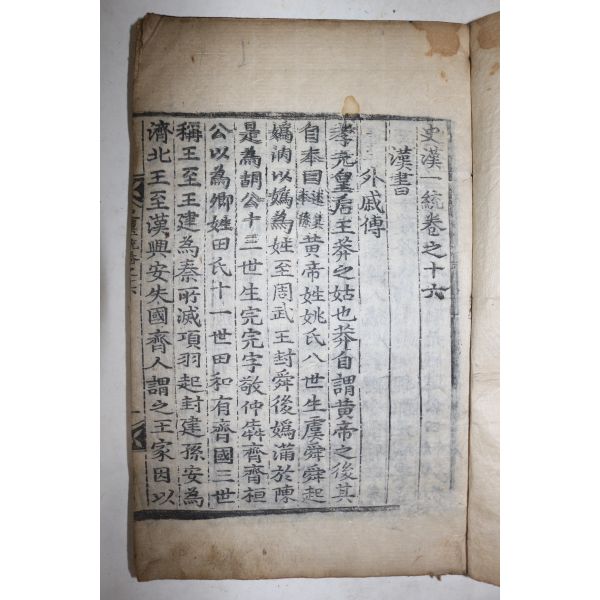 史漢一統卷之十六
漢書
外戚傳
孝元皇后王莽之姑也莽自謂黃帝之後其
自本曰述其本黃帝姓姚氏八世生虞舜舜起
媯汭以媯為姓至周武王封舜後媯滿於陳
是為胡公十三世生完完字敬仲犇齊齊桓
公以為卿姓田氏十一世田和有齊國三世
稱王至王建為秦所滅項羽起封建孫安為
濟北王至漢興安失國齊人謂之王家因以